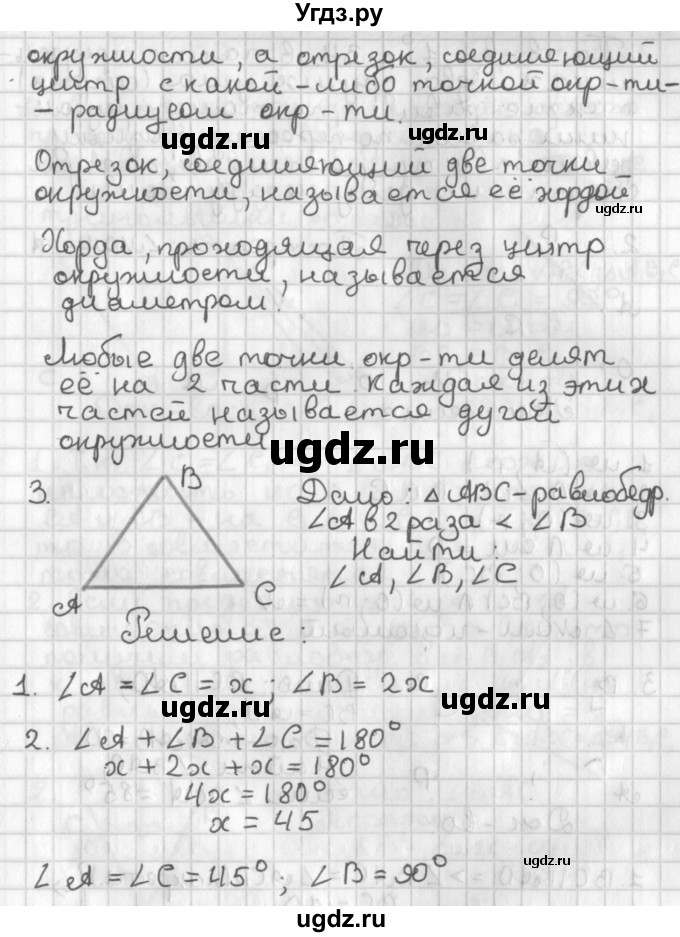 Угдз.ру
окружности, а отрезок, соединяющий
центр с какой-либо точкой окр-ти-
- радиусом окр-ти.
ugdz.ru
ugdz.ru
Отрезок, соединяющий две точки
окружности, называется её хордой
ugdz.ru
ugdz.ru
Хорда, проходящая через центр
окружности, называется
диаметром.
ugdz.ru
Любые две точки окр-ти делят
её на 2 части. Каждая из этих
частей называется дугой
окружности
ugdz.ru
3.
B
A
C
Дано: △ABC-равнобедр.
∠A в 2 раза < ∠B
Найти:
∠A, ∠B, ∠C
ugdz.ru
Решение:
1. ∠A = ∠C = x; ∠B = 2x
ugdz.ru
ugdz.ru
2. ∠A + ∠B + ∠C = 180°
x + 2x + x = 180°
4x = 180°
x = 45
ugdz.ru
∠A = ∠C = 45°; ∠B = 90°
ugdz.ru
ugdz.ru